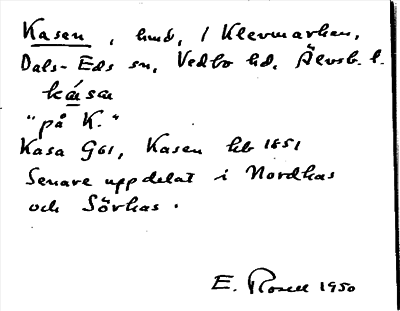 Kasen, hmd, / Klevmarken,
Dals-Eds sn, Vedbo hd, Älvsb. l.
kása
"på K."
Kasa G61, Kasen hb 1851
Senare uppdelat i Nordkas
och Sörkas.
E. Rosell 1950